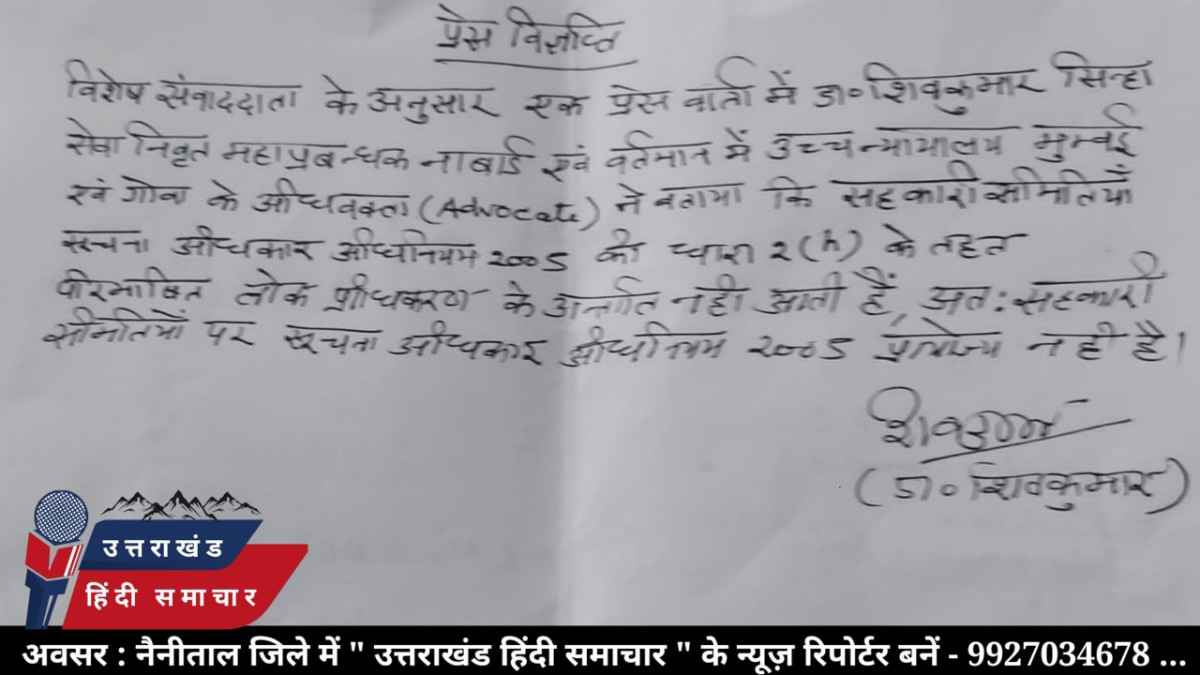 प्रेस विज्ञप्ति
विशेष संवाददाता के अनुसार एक प्रेस वार्ता में डा॰ शिवकुमार सिन्हा
सेवा निवृत महाप्रबन्धक नाबार्ड एवं वर्तमान में उच्च न्यायालय मुम्बई
एवं गोवा के अधिवक्ता (Advocate) ने बताया कि सहकारी समितियाँ
सूचना अधिकार अधिनियम 2005 की धारा 2(h) के तहत
परिभाषित लोक प्राधिकरण के अर्न्तगत नही आती हैं, अतः सहकारी
समितियों पर सूचना अधिकार अधिनियम 2005 प्रयोज्य नही है।
(डा॰ शिवकुमार)
उत्तराखंड
हिंदी समाचार
अवसर : नैनीताल जिले में " उत्तराखंड हिंदी समाचार " के न्यूज़ रिपोर्टर बनें - 9927034678 ...